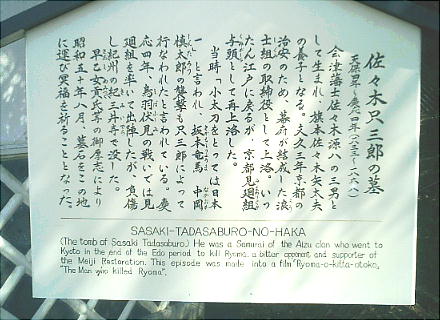 佐々木只三郎の墓
天保四年〜慶応四年(一八三三〜一八六八)
会津藩士佐々木源八の三男と
して生まれ、旗本佐々木矢太夫
の養子となる。文久三年京都の
治安のため、幕府が結成した浪
士組の取締役として上洛。いっ
たん江戸に戻るが、京都見廻組
与頭として再上洛した。
当時「小太刀をとっては日本
一」と言われ、坂本竜馬・中岡
慎太郎の襲撃も只三郎によって
行なわれたと言われている。慶
応四年、鳥羽伏見の戦いでは見
廻組を率いて出陣したが、負傷
し紀州の紀三井寺で没した。
早乙女貢氏等の御厚志により
昭和五十年八月、墓石をこの地
に運び冥福を祈ることとなった。
SASAKI-TADASABURO-NO-HAKA
(The tomb of Sasaki Tadasaburo) He was a Samurai of the Aizu clan who went to
Kyoto in the end of the Edo period to kill Ryoma, a bitter opponent and supporter of
the Meiji Restoration. This episode was made into a film "Ryoma-o-kitta-otoko,
"The Man who killed Ryoma".